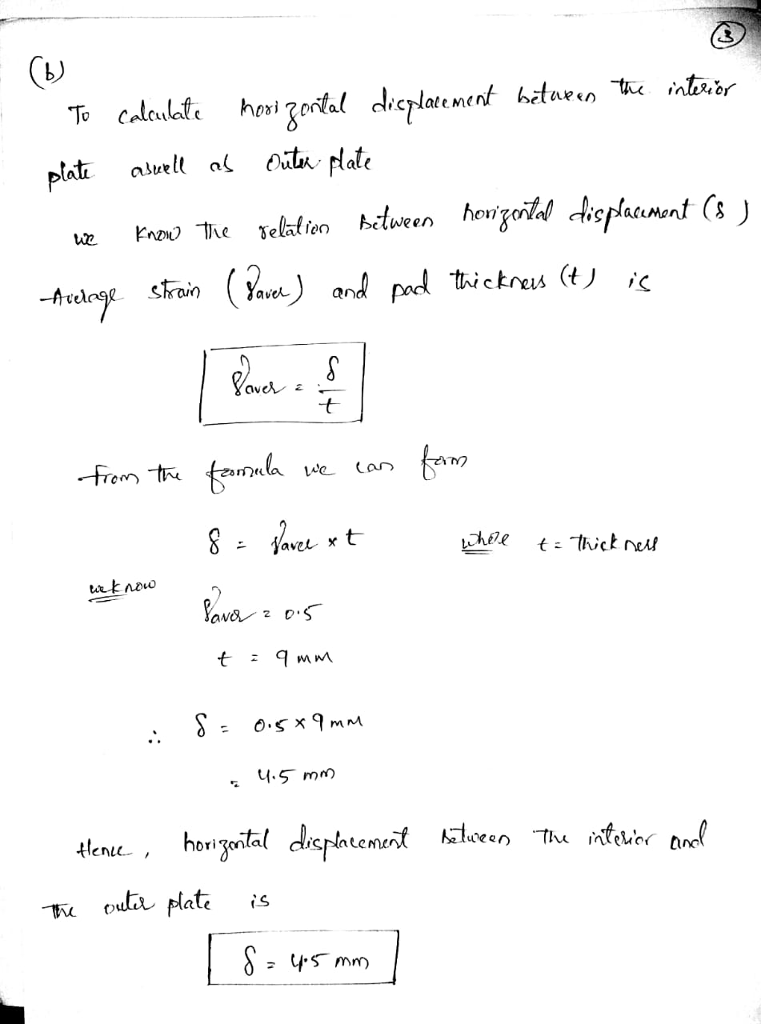 3
(b)
To calculate horizontal displacement between the interior
plate aswell as Outer plate
we know the relation between horizontal displacement (δ)
Average strain (γaver) and pad thickness (t) is
γaver = δ/t
from the formula we can form
δ = γaver × t where t = thickness
we know
γaver = 0.5
t = 9 mm
∴ δ = 0.5 × 9 mm
= 4.5 mm
Hence, horizontal displacement between the interior and
the outer plate is
δ = 4.5 mm